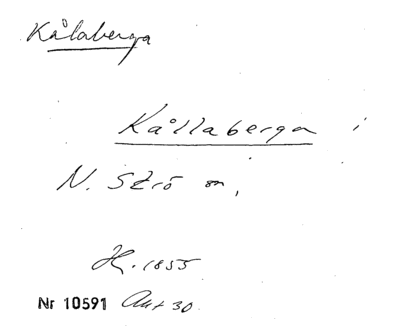 Kålaberga
Kållaberga i
N. Strö sn,
H. 1855
Nr 10591 Akt 30